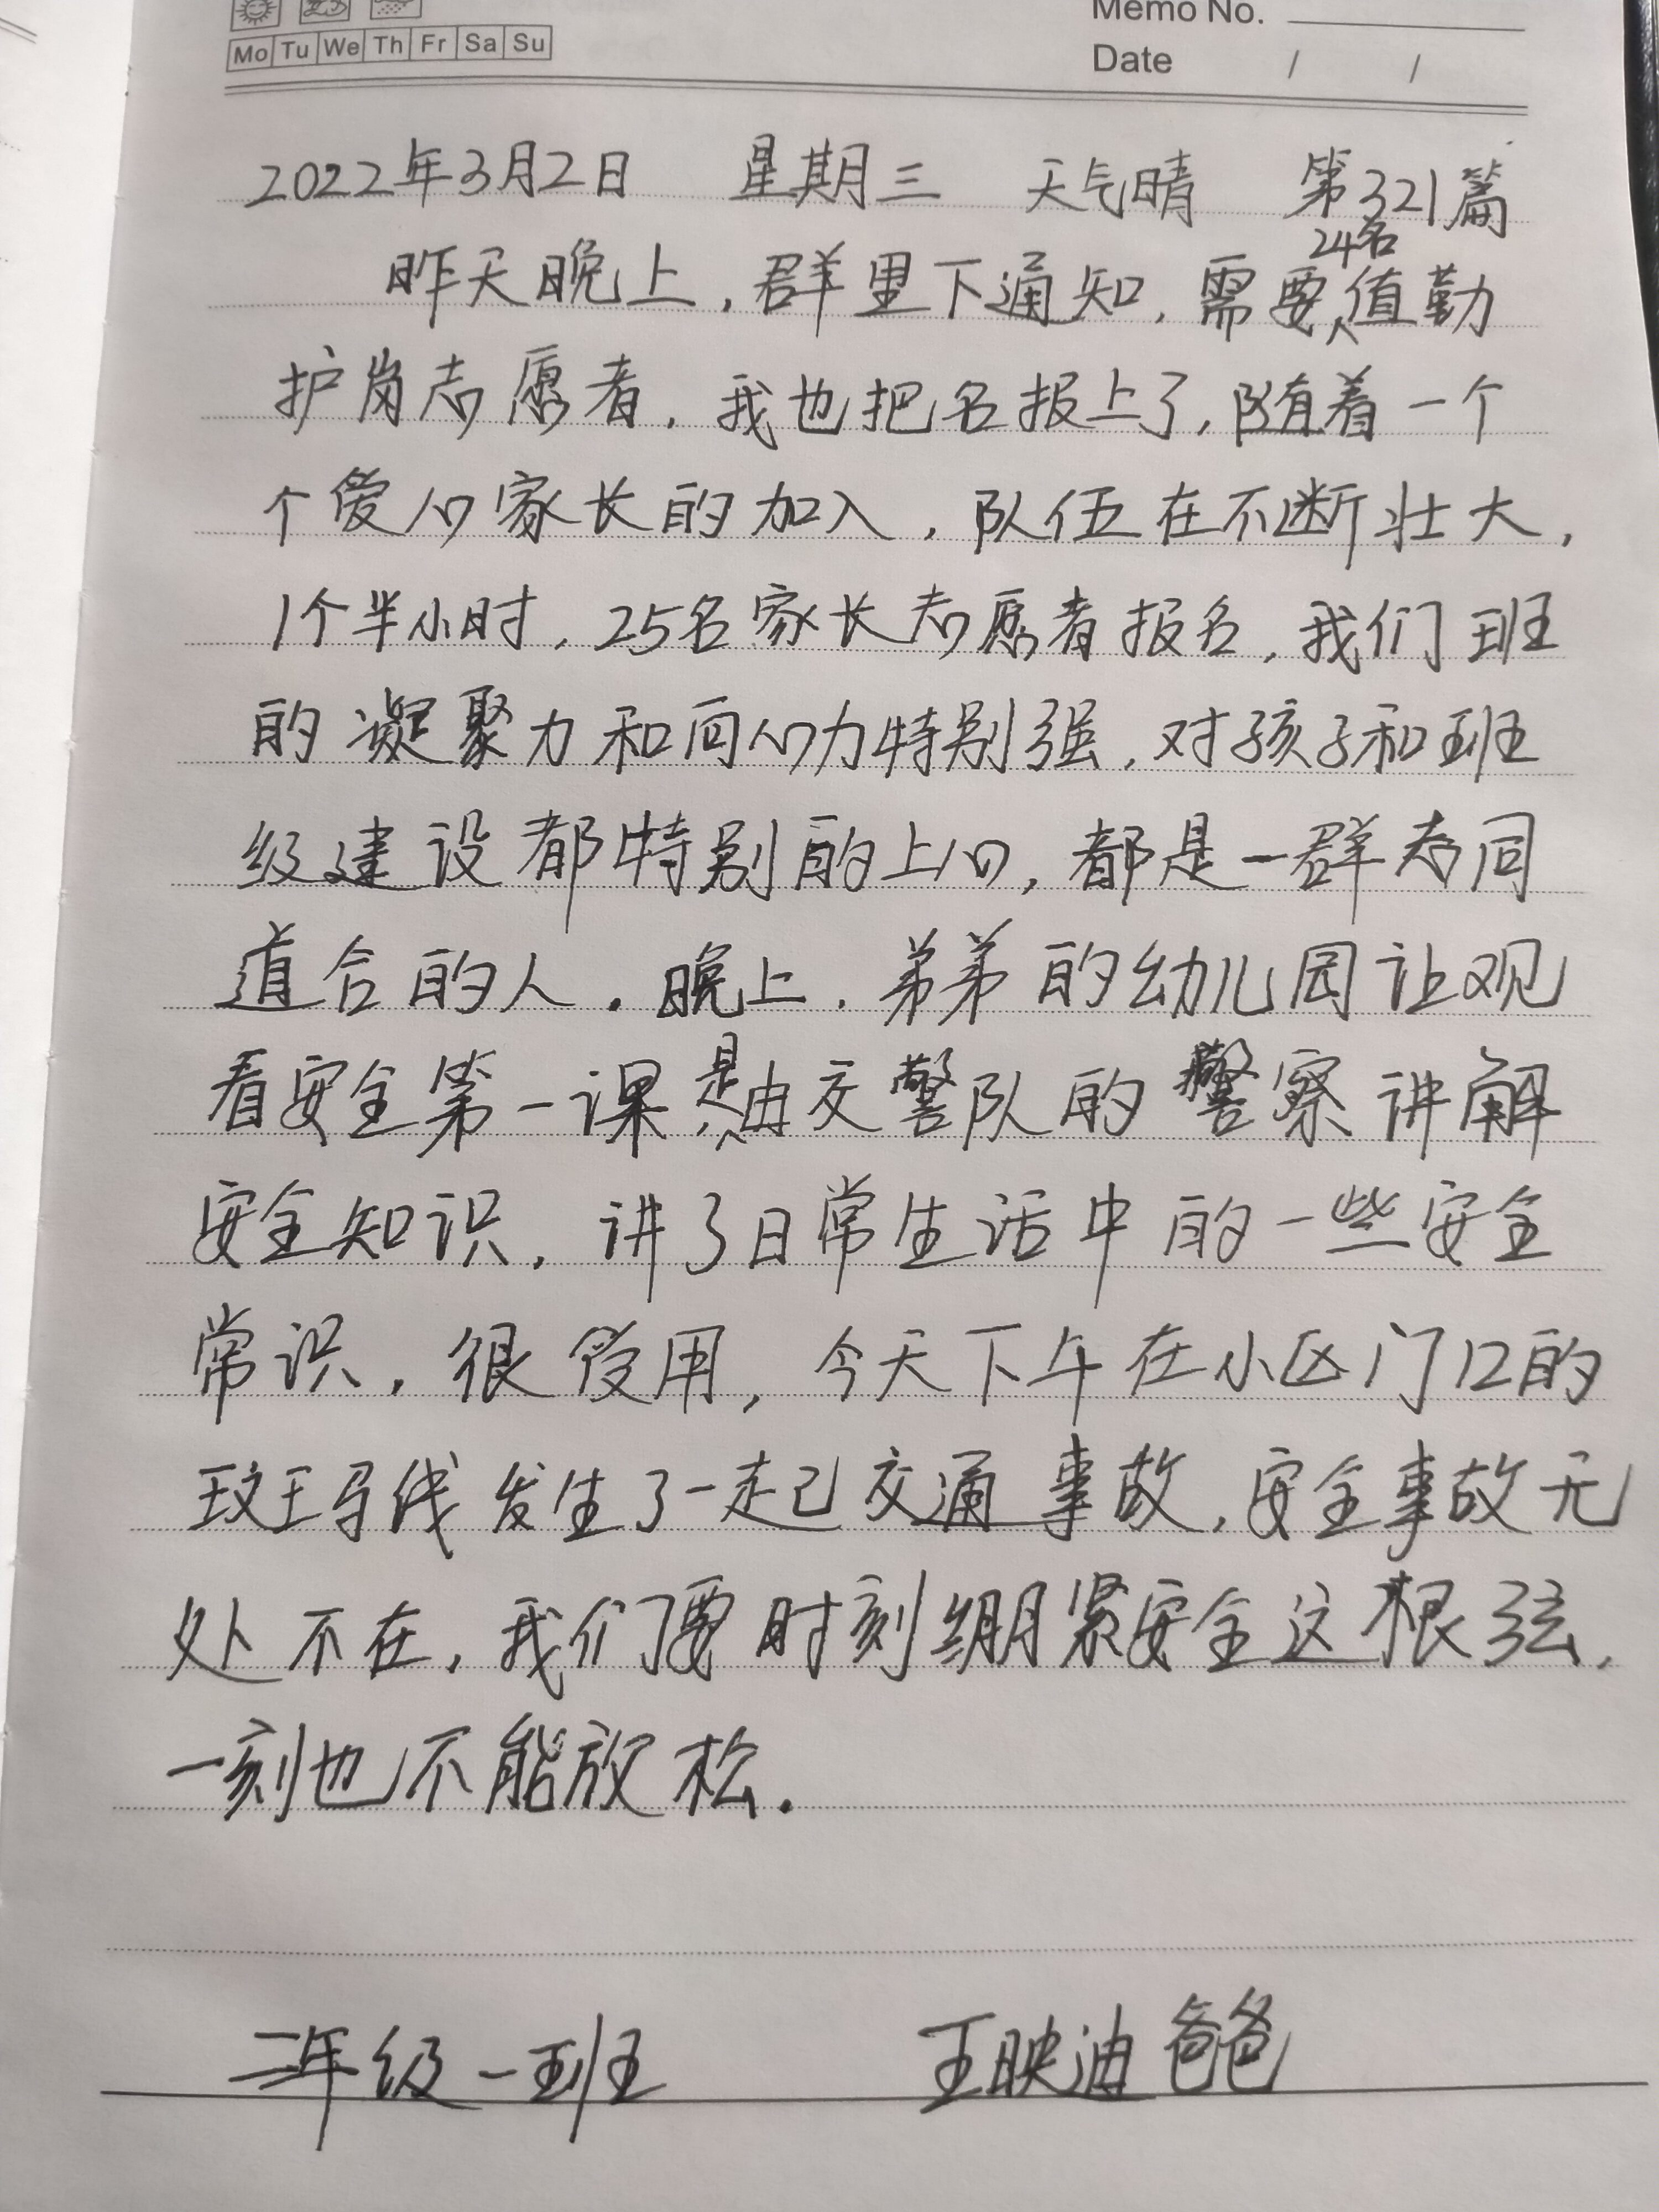 Memo No.
Mo Tu We Th Fr Sa Su
Date / /
2022年3月2日 星期三 天气晴 第321篇
昨天晚上,群里下通知,需要24名值勤
护岗志愿者,我也把名报上了,随着一个
个爱心家长的加入,队伍在不断壮大,
1个半小时,25名家长志愿者报名,我们班
的凝聚力和向心力特别强,对孩子和班
级建设都特别的上心,都是一群志同
道合的人.晚上,弟弟的幼儿园让观
看安全第一课,是由交警队的警察讲解
安全知识,讲了日常生活中的一些安全
常识,很受用,今天下午在小区门口的
斑马线发生了一起交通事故,安全事故无
处不在,我们要时刻绷紧安全这根弦,
一刻也不能放松.
二年级一班 王映迪爸爸